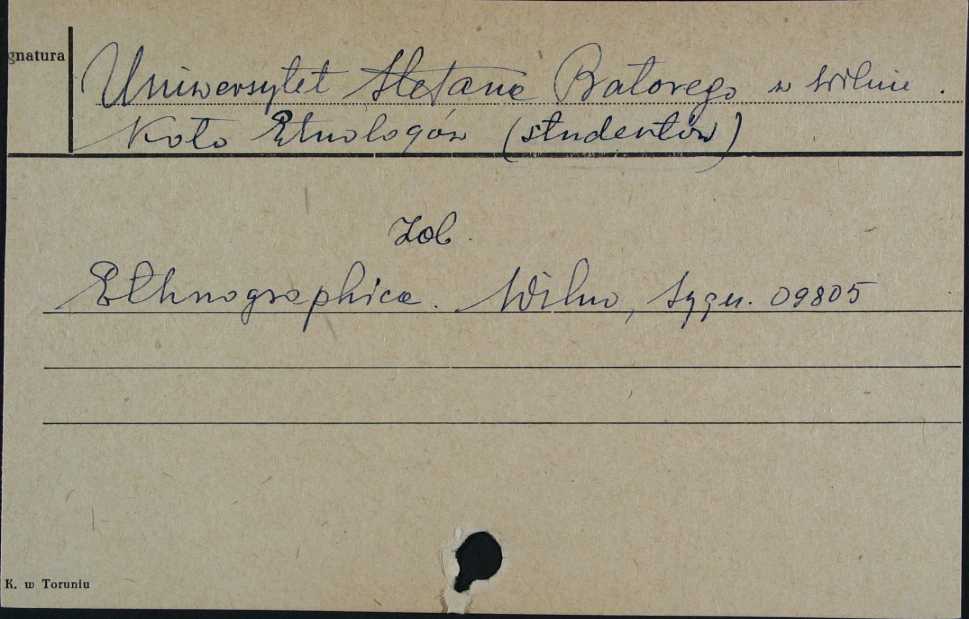 gnatura
Uniwersytet Stefana Batorego w Wilnie.
Koło Etnologów (studentów)
Zob.
Ethnographica. Wilno, sygn. 09805
K. w Toruniu